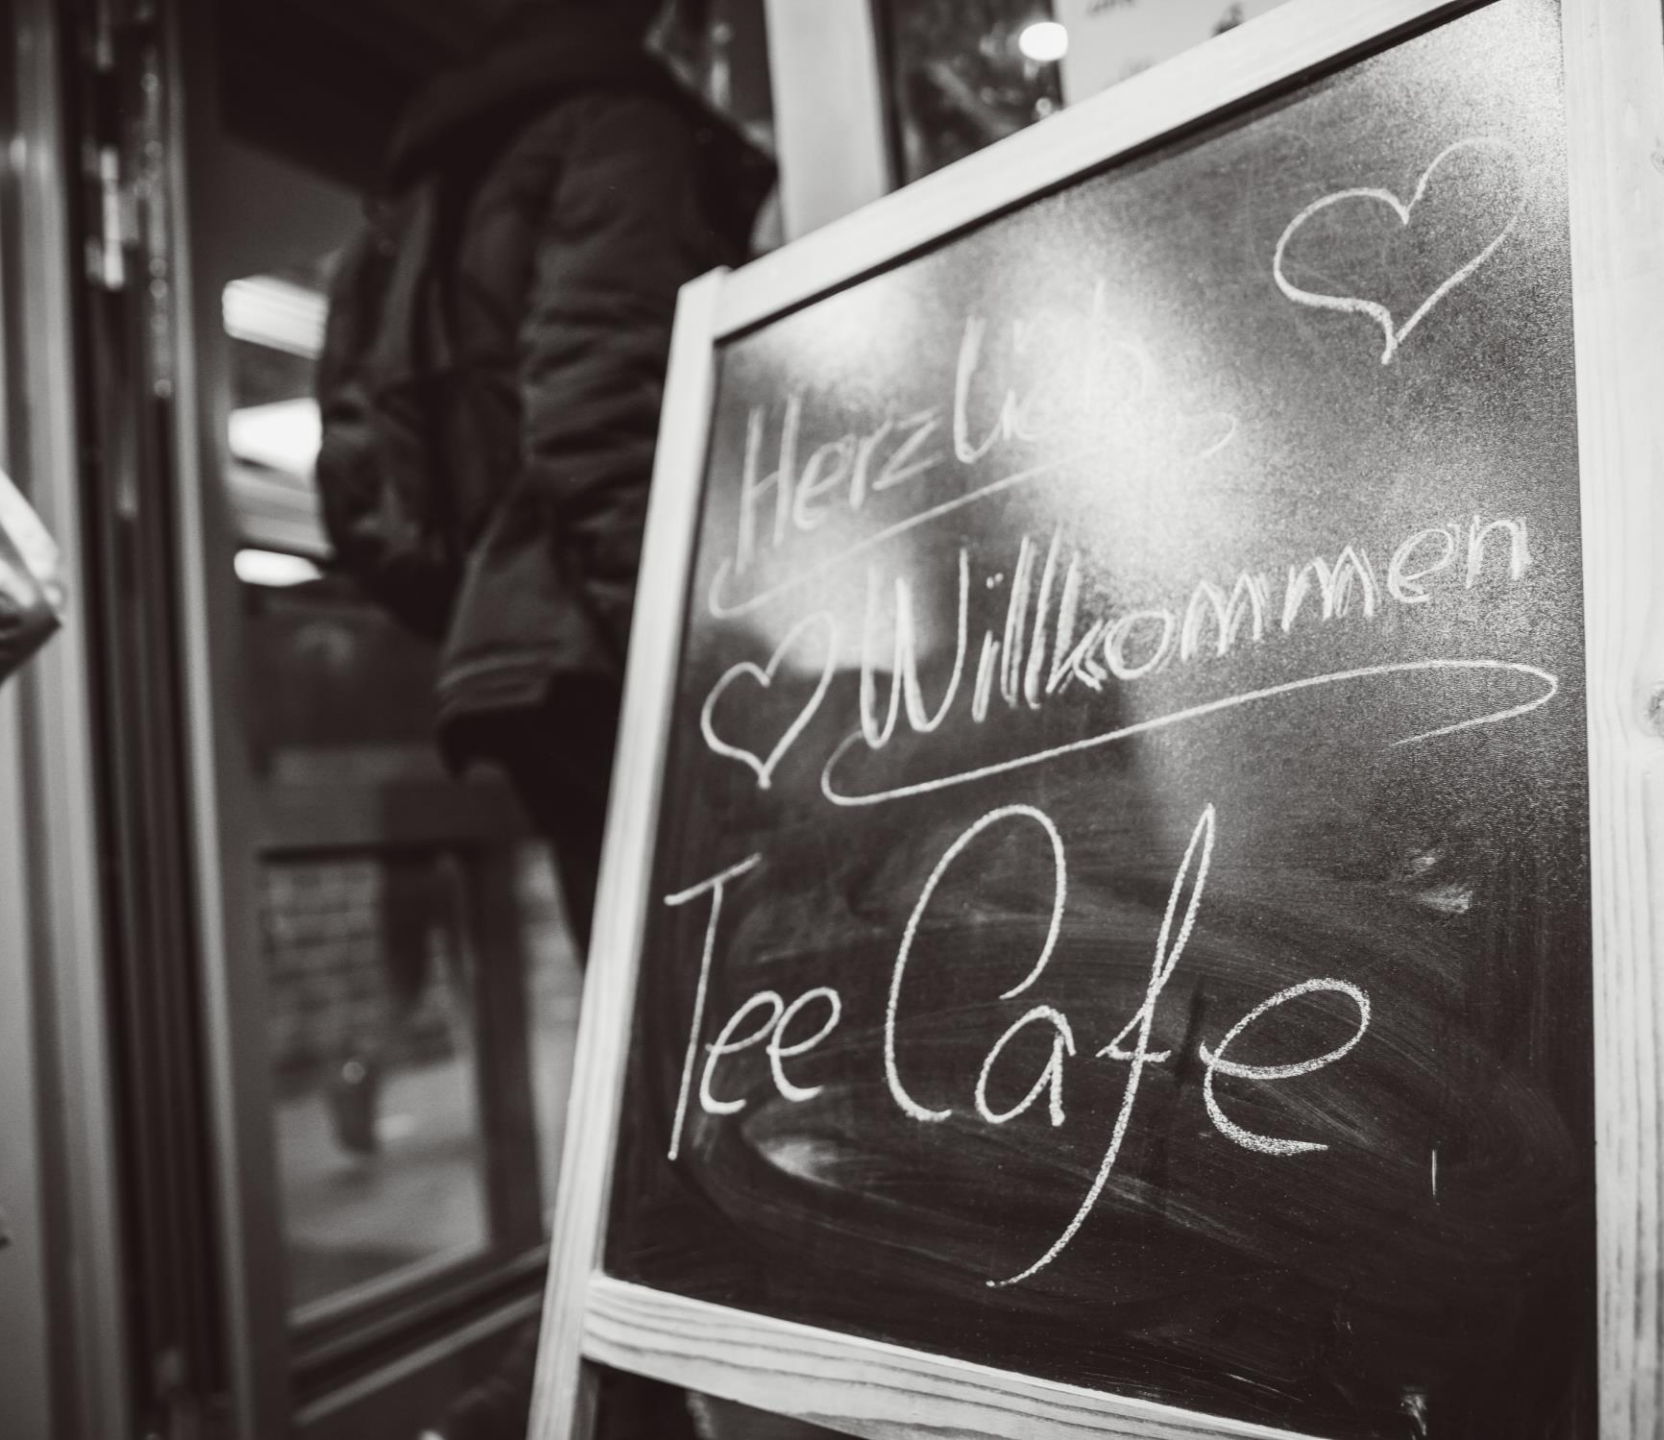 Herzlich
Willkommen
Tee Cafe